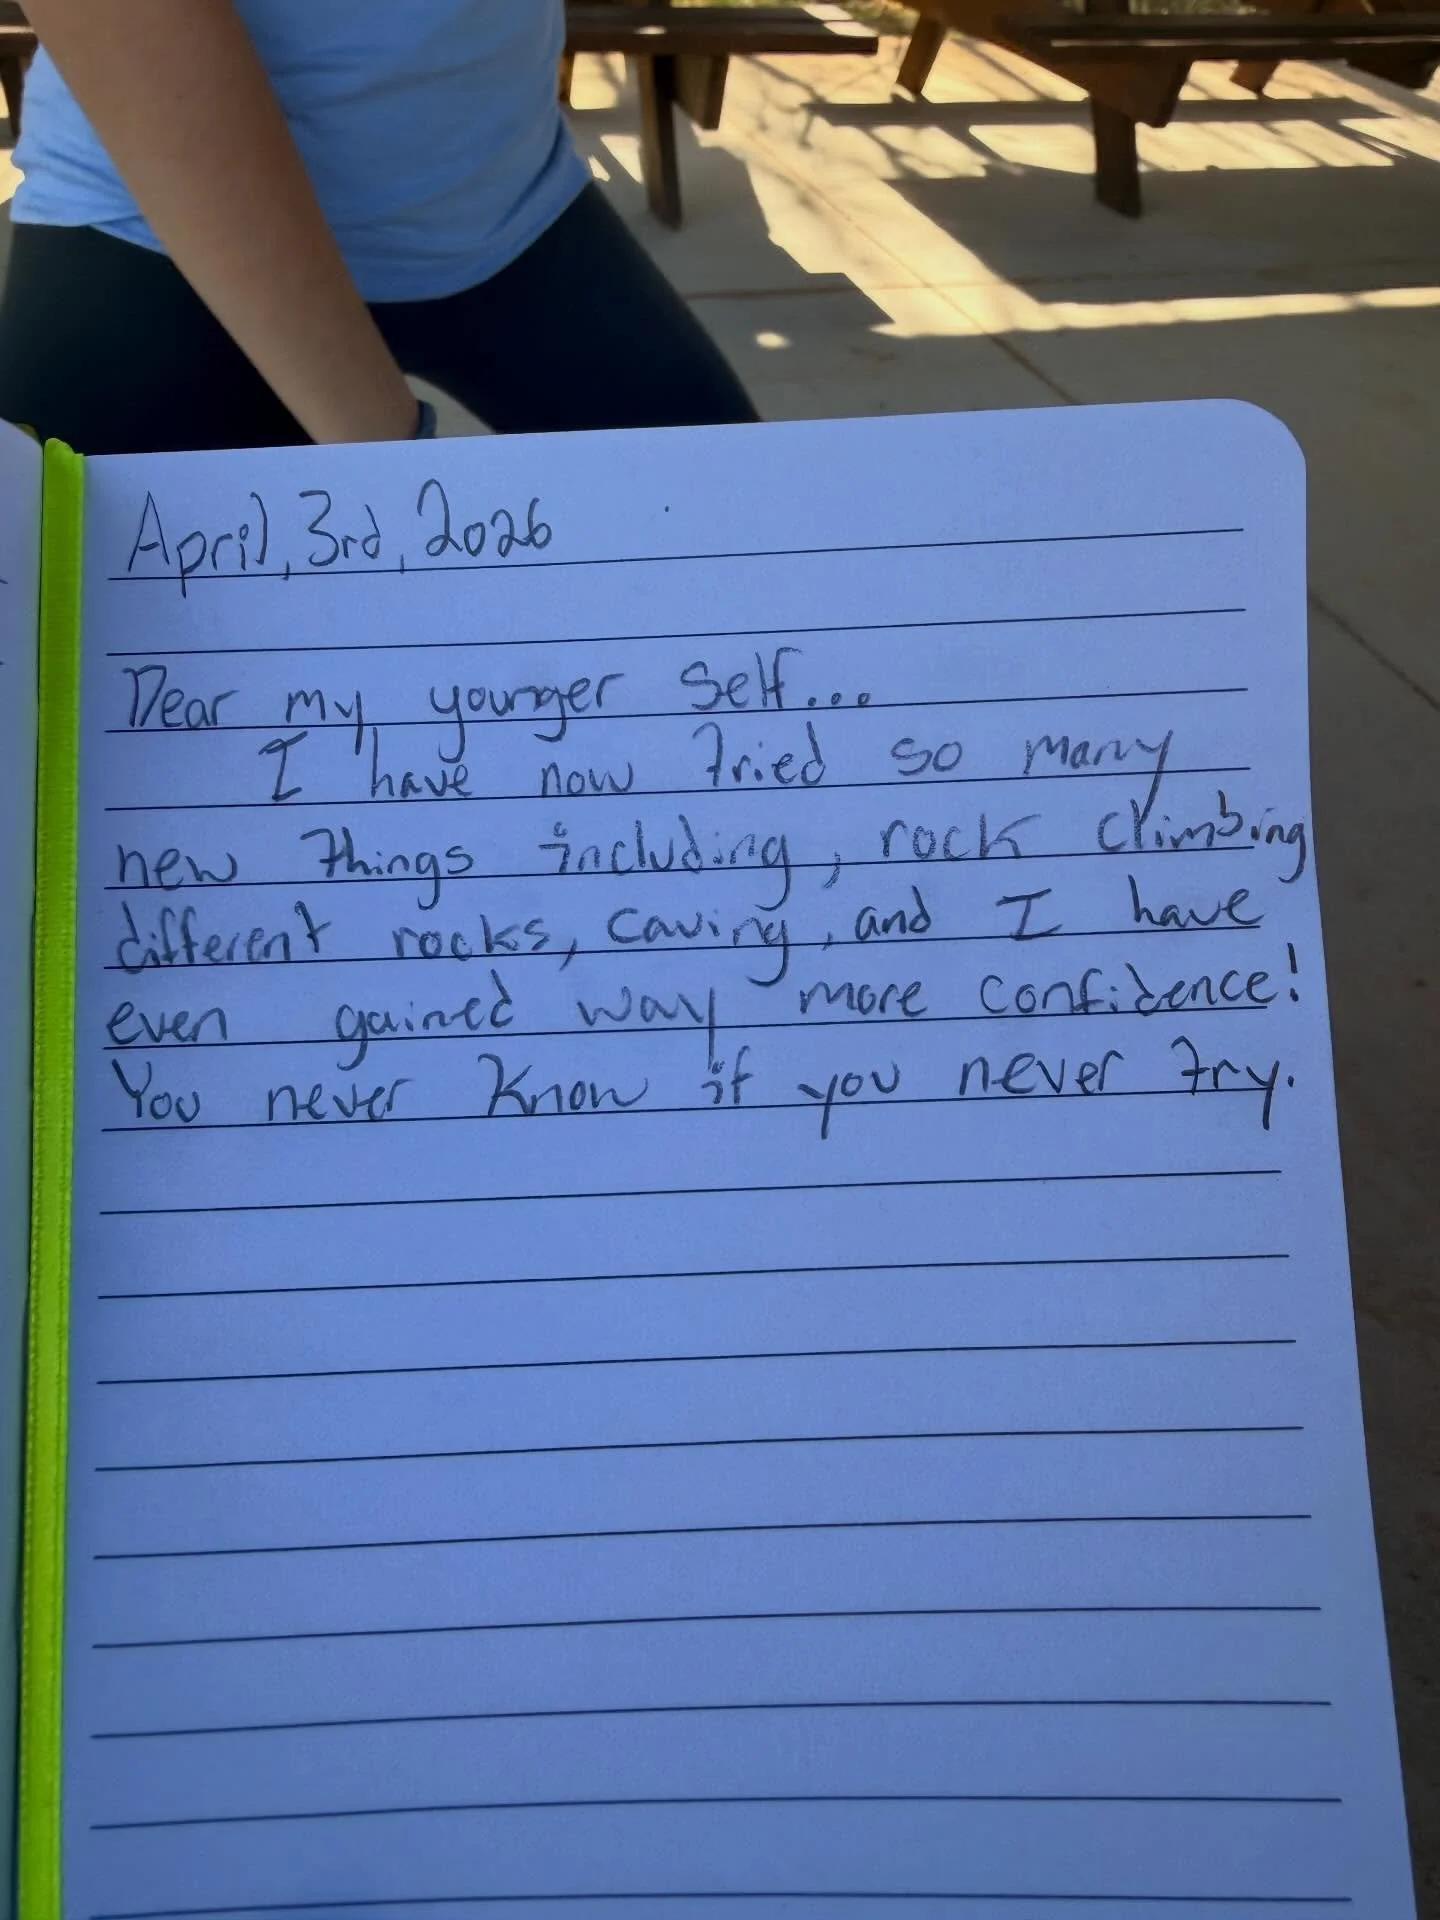 April, 3rd, 2026
Dear my younger self...
I have now tried so many
new things including, rock climbing
different rocks, caving, and I have
even gained way more confidence!
You never know if you never try.